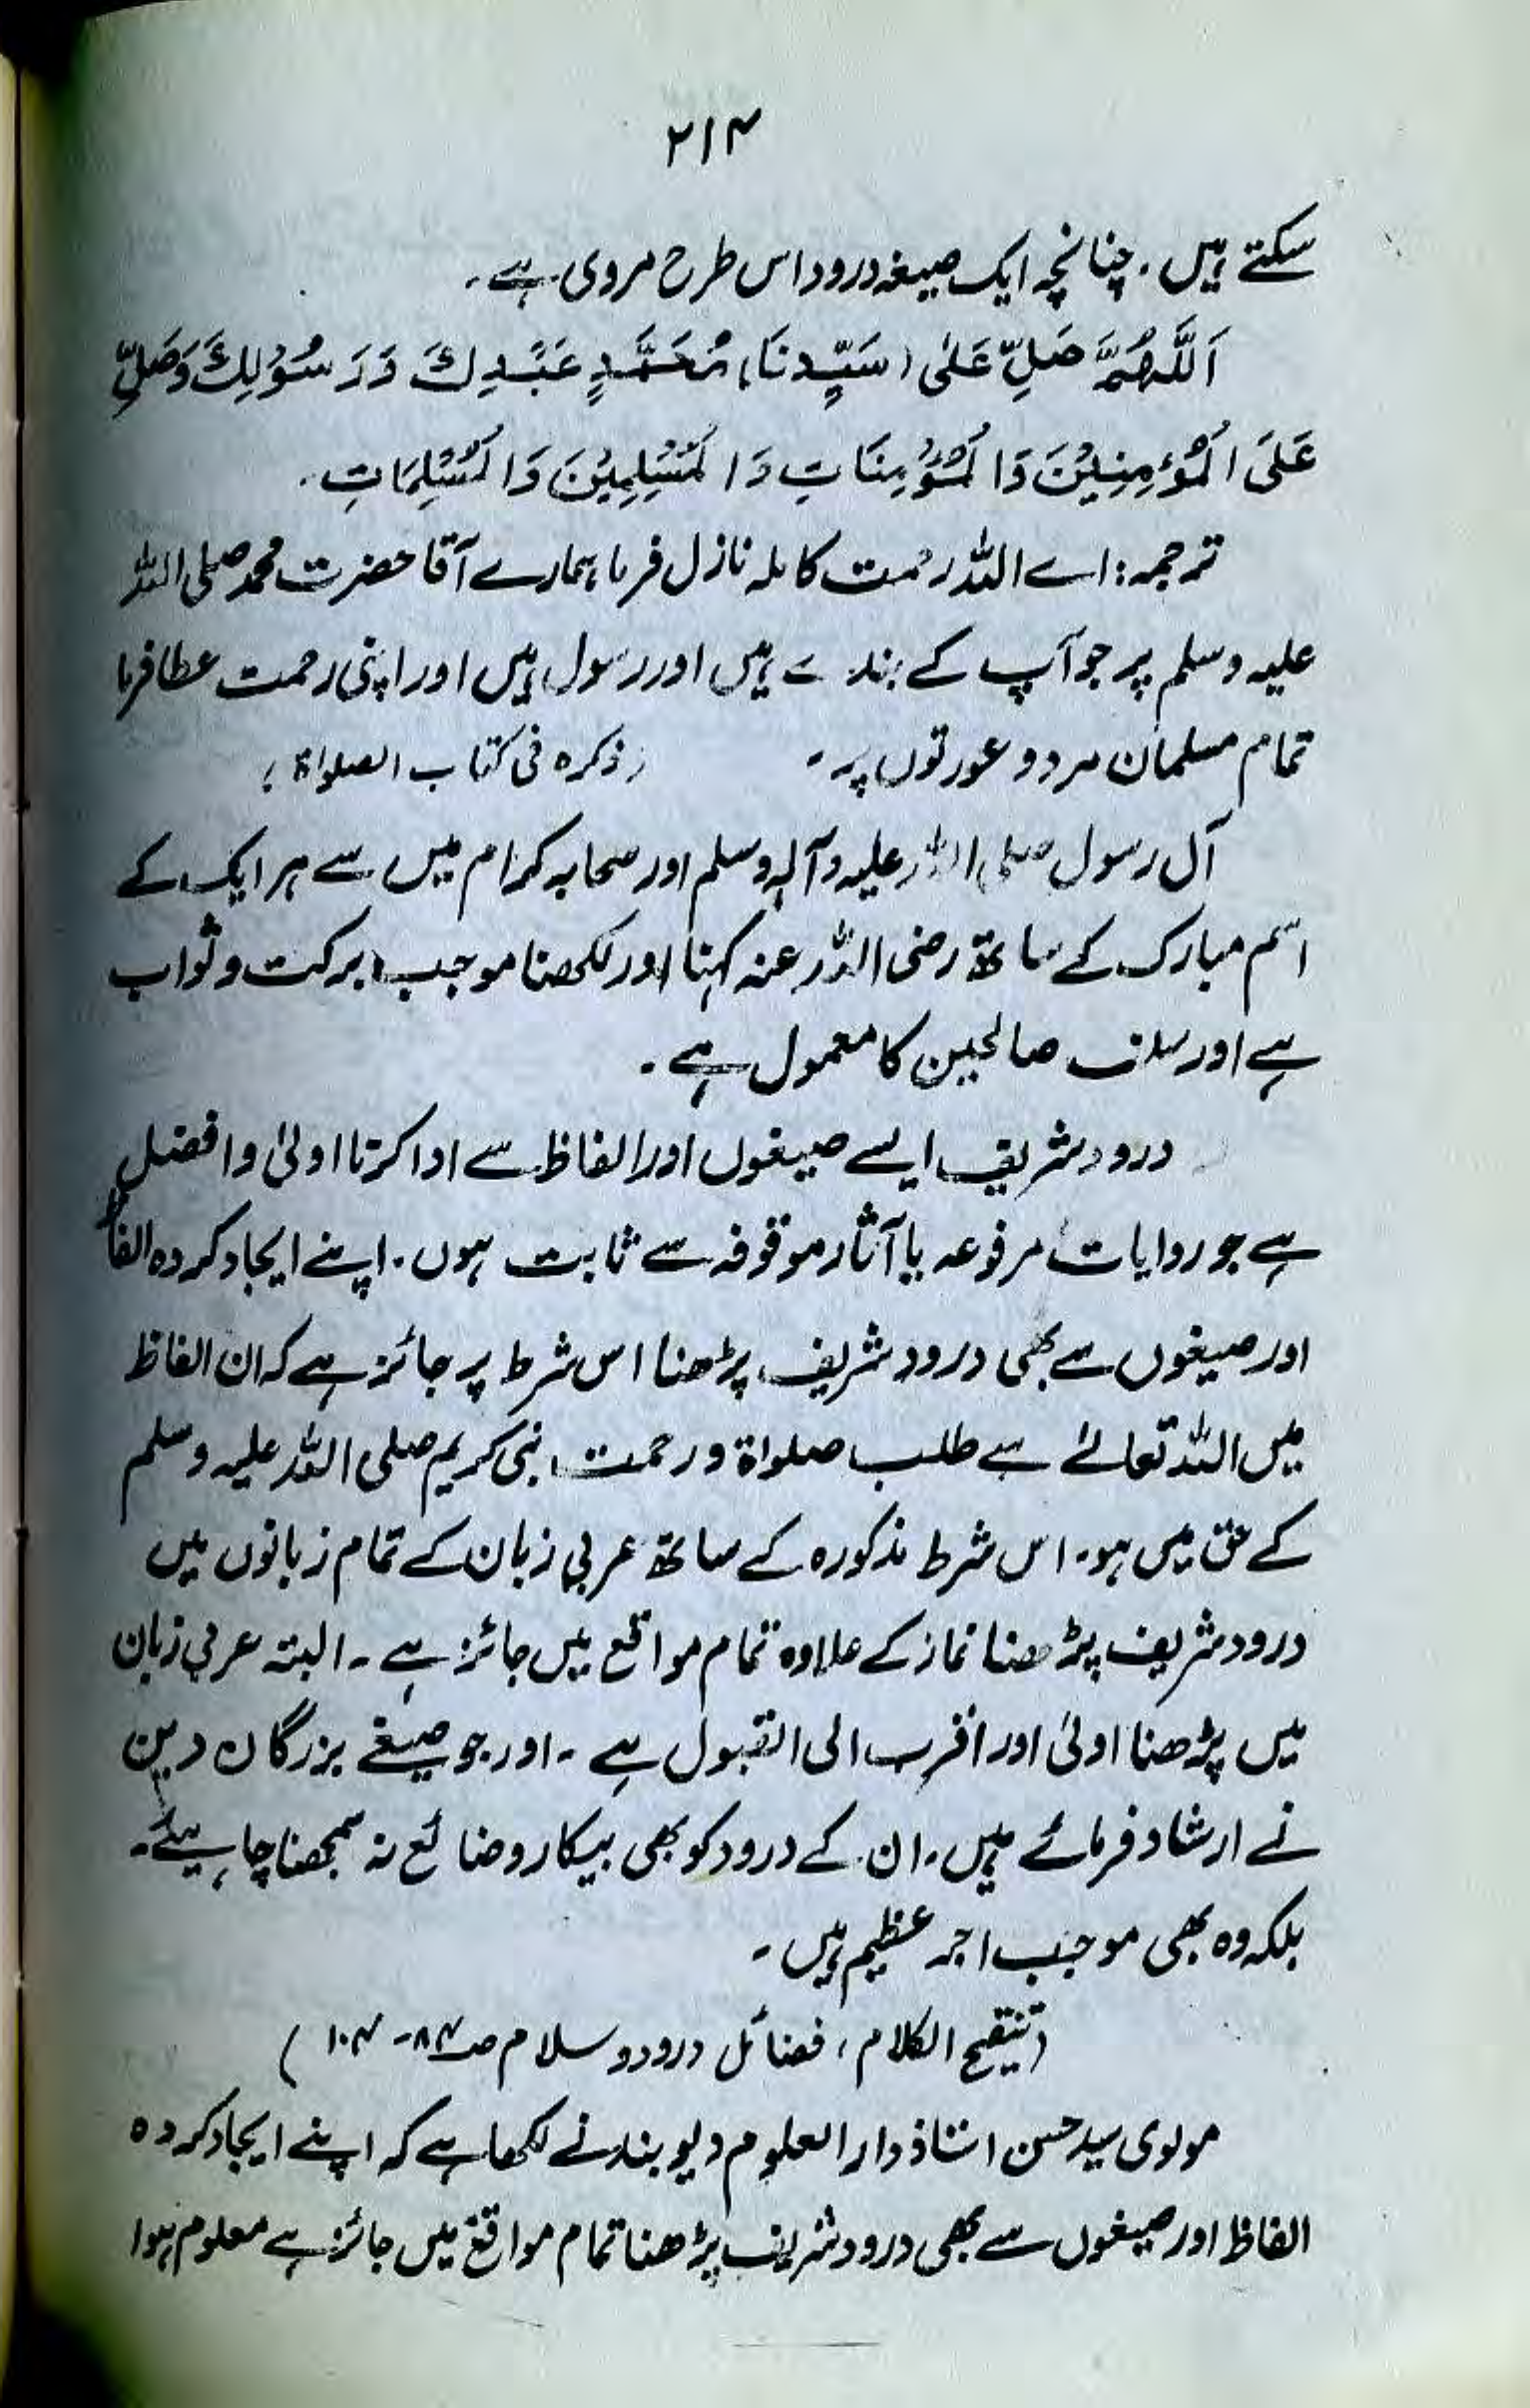 ۲۱۴
سکتے ہیں. چنانچہ ایک صیغہ درود اس طرح مروی ہے۔
اَللّٰہُمَّ صَلِّ عَلٰی (سَیِّدِنَا) مُحَمَّدٍ عَبْدِكَ وَرَسُوْلِكَ وَصَلِّ
عَلَی الْمُؤْمِنِیْنَ وَالْمُؤْمِنَاتِ وَالْمُسْلِمِیْنَ وَالْمُسْلِمَاتِ.
ترجمہ: اے اللہ رحمت کاملہ نازل فرما ہمارے آقا حضرت محمد صلی اللہ
علیہ وسلم پر جو آپ کے بندے ہیں اور رسول ہیں اور اپنی رحمت عطا فرما
تمام مسلمان مرد و عورتوں پر۔ (ذکرہ فی کتاب الصلواۃ)
آل رسول صلی اللہ علیہ وآلہ وسلم اور صحابہ کرام میں سے ہر ایک کے
اسم مبارک کے ساتھ رضی اللہ عنہ کہنا اور لکھنا موجب برکت و ثواب
ہے اور سلف صالحین کا معمول ہے۔
درود شریف ایسے صیغوں اور الفاظ سے ادا کرنا اولیٰ و افضل
ہے جو روایات مرفوعہ یا آثار موقوفہ سے ثابت ہوں. اپنے ایجاد کردہ الفاظ
اور صیغوں سے بھی درود شریف پڑھنا اس شرط پر جائز ہے کہ ان الفاظ
میں اللہ تعالےٰ سے طلب صلواۃ و رحمت نبی کریم صلی اللہ علیہ وسلم
کے حق میں ہو۔ اس شرط مذکورہ کے ساتھ عربی زبان کے تمام زبانوں میں
درود شریف پڑھنا نماز کے علاوہ تمام مواقع میں جائز ہے۔ البتہ عربی زبان
میں پڑھنا اولیٰ اور اقرب الی القبول ہے۔ اور جو صیغے بزرگان دین
نے ارشاد فرمائے ہیں، ان کے درود کو بھی بیکار و ضائع نہ سمجھنا چاہیئے۔
بلکہ وہ بھی موجب اجر عظیم ہیں۔
(تنقیح الکلام، فضائل درود و سلام صـ ۸۴-۱۰۴)
مولوی سید حسن استاذ دارالعلوم دیوبند نے لکھا ہے کہ اپنے ایجاد کردہ
الفاظ اور صیغوں سے بھی درود شریف پڑھنا تمام مواقع میں جائز ہے معلوم ہوا